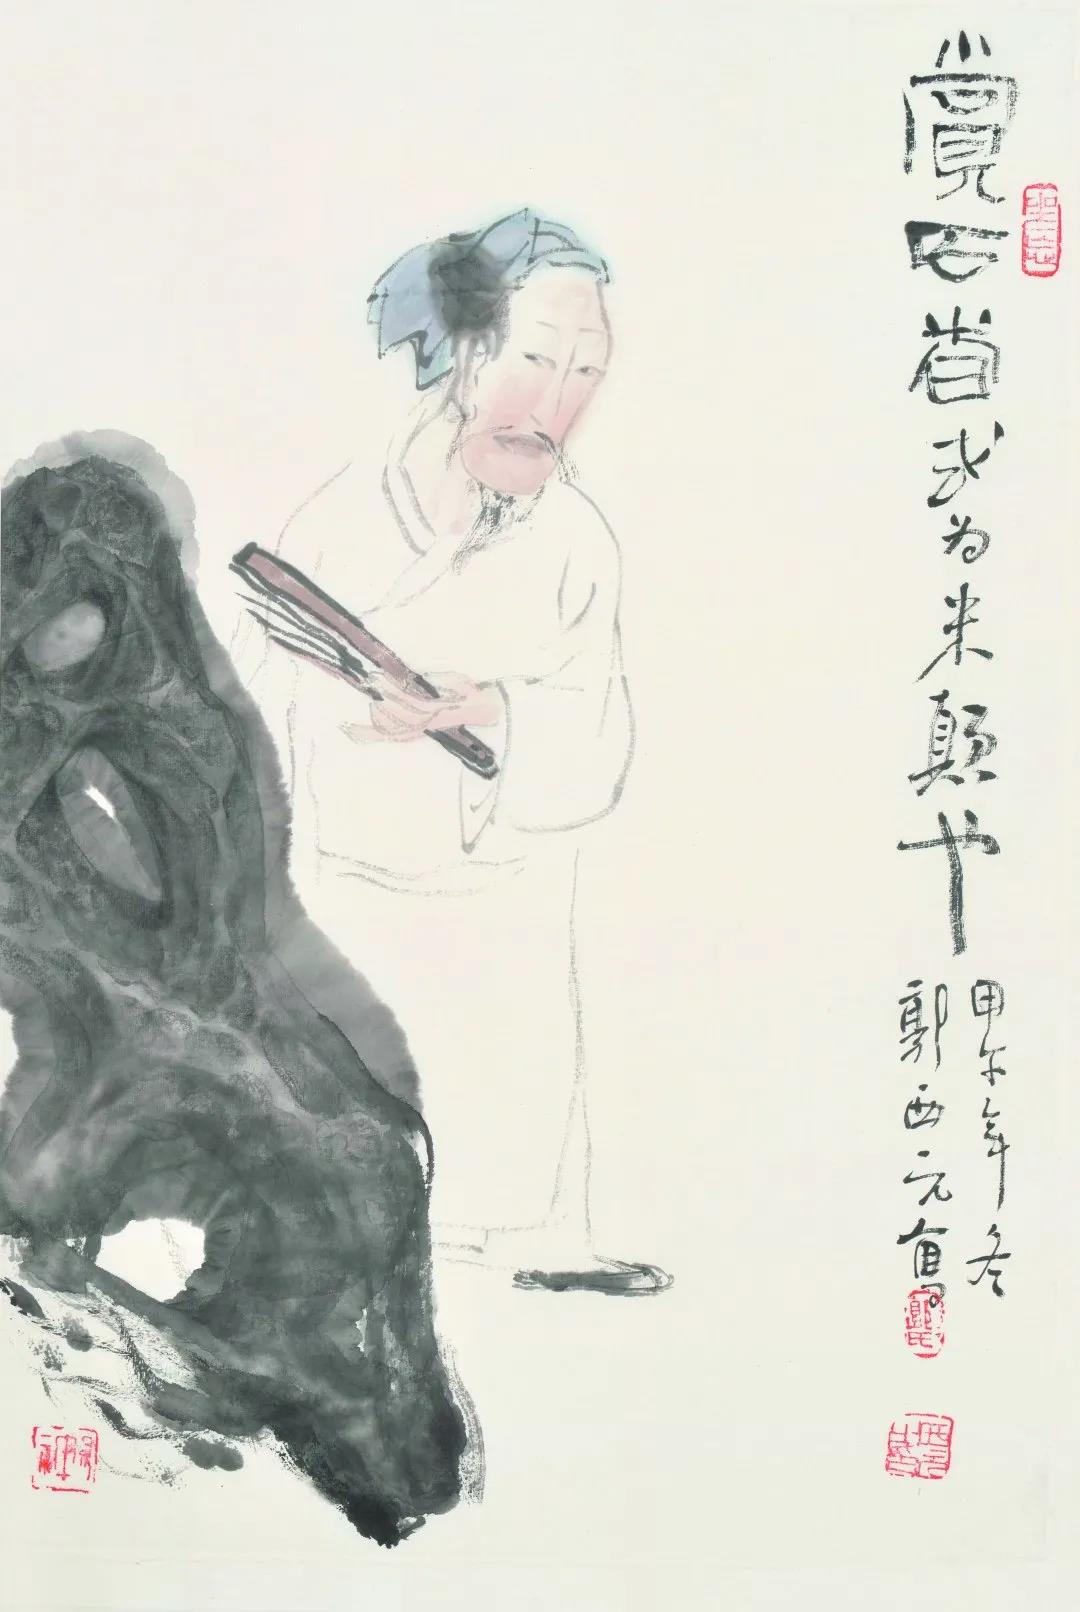 賞石者或为米顛也
甲午年冬
郭西元寫